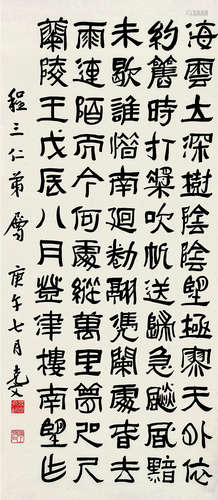 海雲大深樹陰陰望極寥天外依
約舊時打槳吹帆送歸急飈風黯
未歇誰惜南迴勁翮憑闌處春去
雨連陌而今何處縱萬里夢咫尺
蘭陵王戊辰八月登津樓南望作
程三仁弟屬 庚午七月